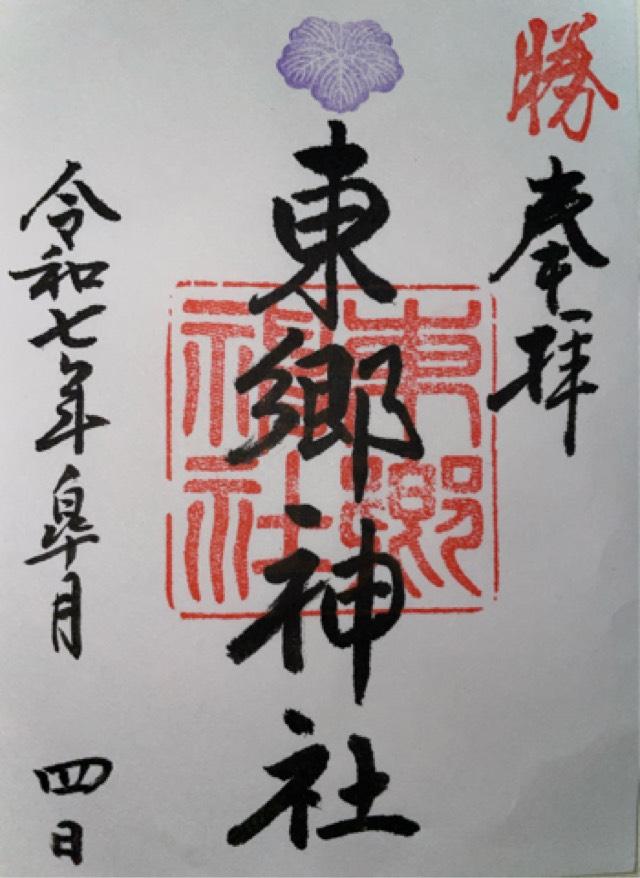 勝
奉拝
東郷神社
東郷神社
令和七年皐月 四日